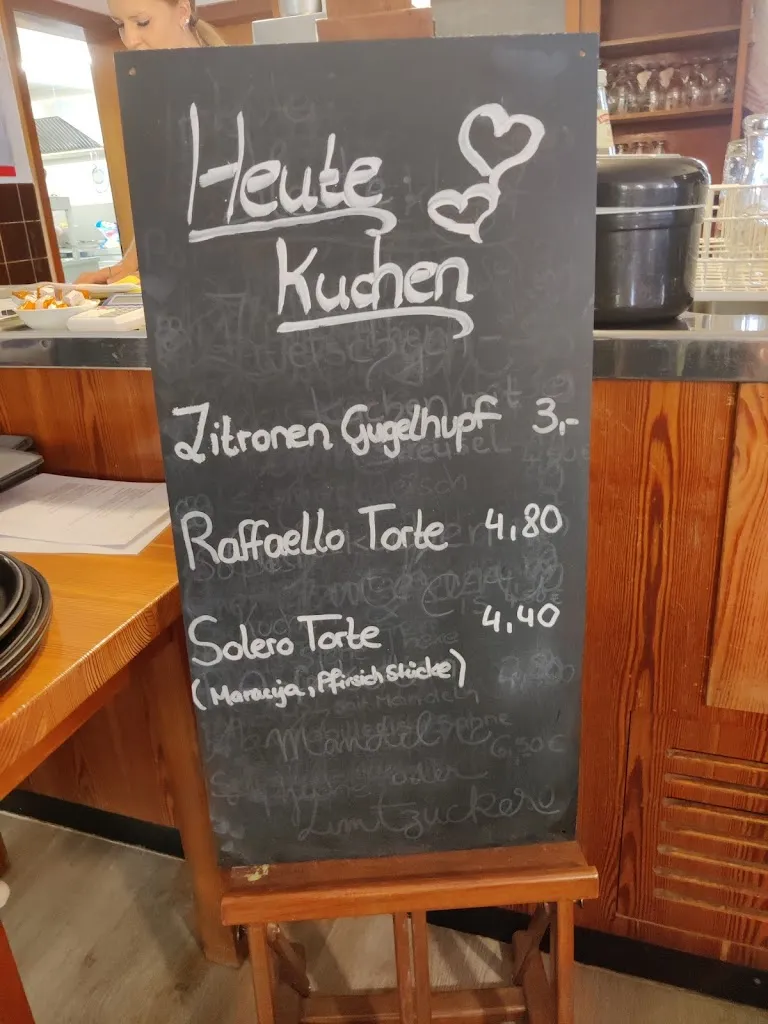 Heute
Kuchen
Zitronen Gugelhupf 3,-
Raffaello Torte 4,80
Solero Torte 4,40
(Maracuja, Pfirsich Stücke)
Mandel
6,50€
Zimtzucker